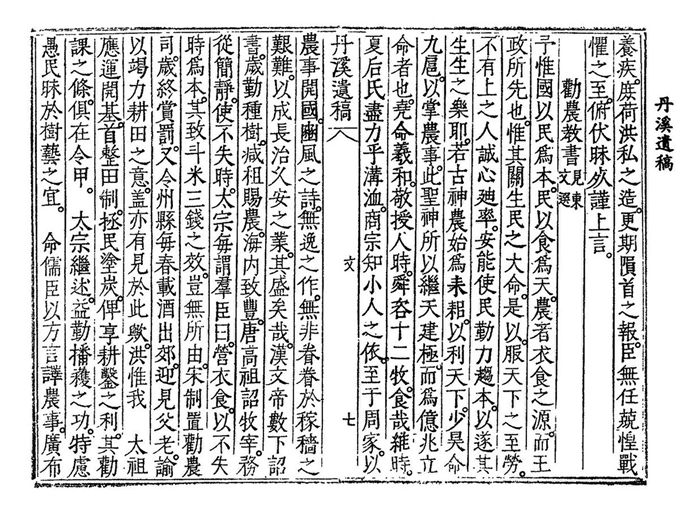 丹溪遺稿
養疾。庶荷洪私之造。更期隕首之報。臣無任兢惶戰
懼之至。俯伏昧死謹上言。
勸農敎書 見東文選
予惟國以民爲本。民以食爲天。農者衣食之源。而王
政所先也。惟其關生民之大命。是以服天下之至勞。
不有上之人誠心迪率。安能使民勤力趨本。以遂其
生生之樂耶。若古神農始爲耒耜。以利天下。少昊命
九扈。以掌農事。此聖神所以繼天建極。而爲億兆立
命者也。堯命羲和。敬授人時。舜咨十二牧。食哉維時。
夏后氏盡力乎溝洫。商宗知小人之依。至于周家。以
丹溪遺稿 文 七
農事開國。豳風之詩。無逸之作。無非眷眷於稼穡之
艱難。以成長治久安之業。其盛矣哉。漢文帝數下詔
書。歲勸種樹。減租賜農。海內致豐。唐高祖詔牧宰。務
從簡靜。使不失時。太宗每謂羣臣曰。營衣食。以不失
時爲本。其致斗米三錢之效。豈無所由。宋制置勸農
司。歲終賞罰。又令州縣每春載酒出郊。迎見父老。諭
以竭力耕田之意。盖亦有見於此歟。洪惟我 太祖
應運開基。首整田制。拯民塗炭。俾享耕鑿之利。其勸
課之條。俱在令甲。 太宗繼述。益勤播穫之功。特慮
愚民昧於樹藝之宜。 命儒臣以方言譯農事。廣布